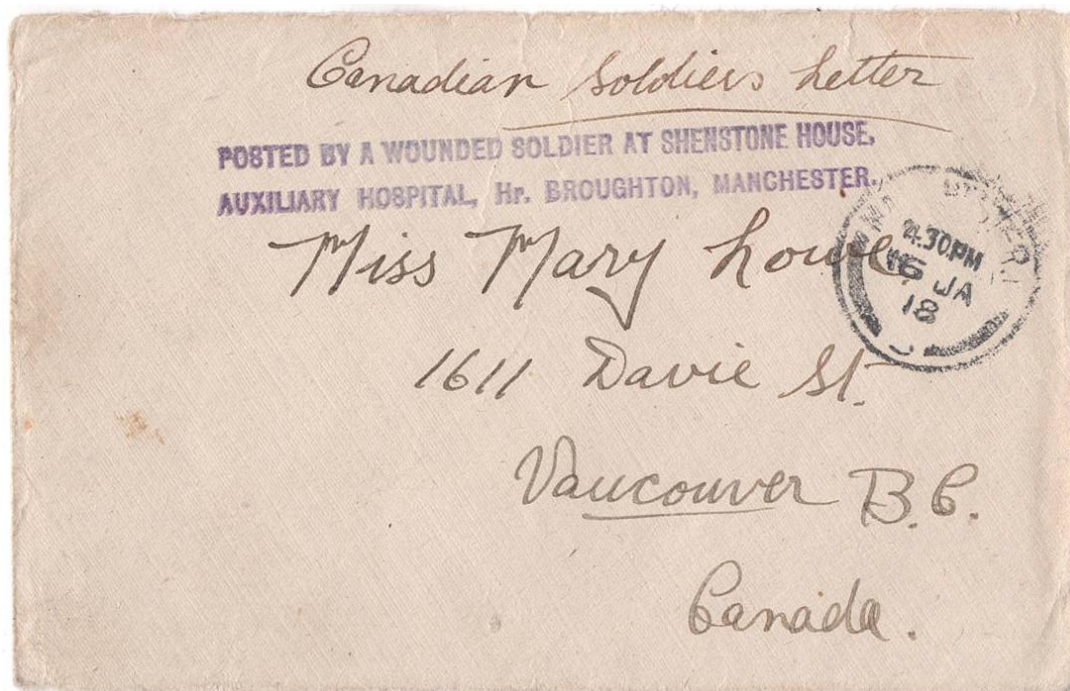 Canadian Soldiers Letter
POSTED BY A WOUNDED SOLDIER AT SHENSTONE HOUSE,
AUXILIARY HOSPITAL, Hr. BROUGHTON, MANCHESTER.
Miss Mary Lowe
4.30PM
16 JA
18
1611 Davie St.
Vancouver B.C.
Canada.